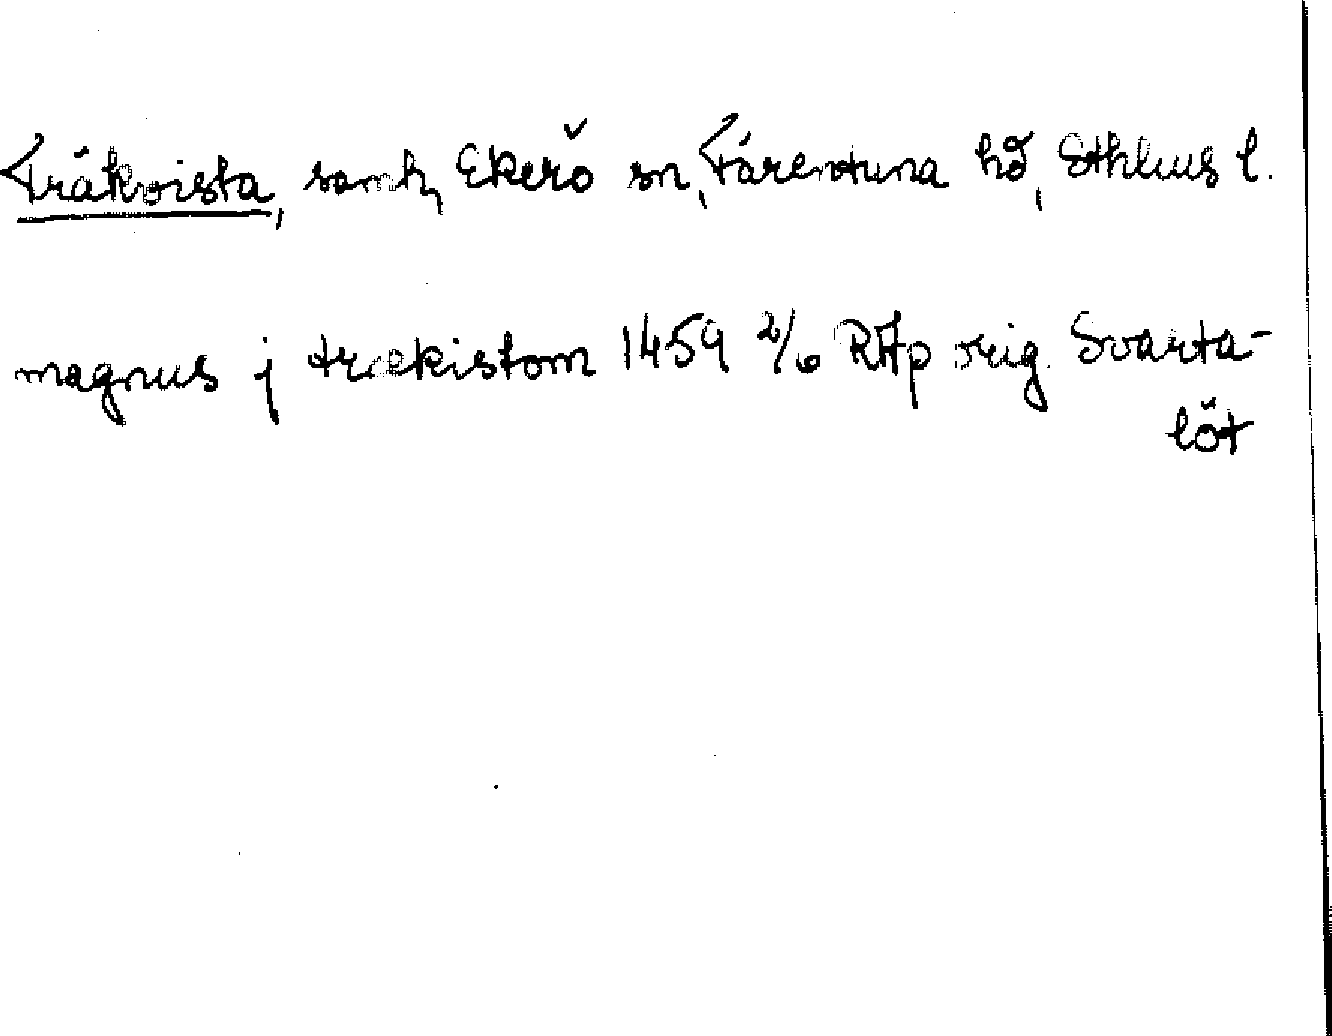 Träkvista, samh, Ekerö sn, Färentuna hd, Sthlms l.
magnus j trækistom 1459 2/6 RAp orig. Svarta-
löt